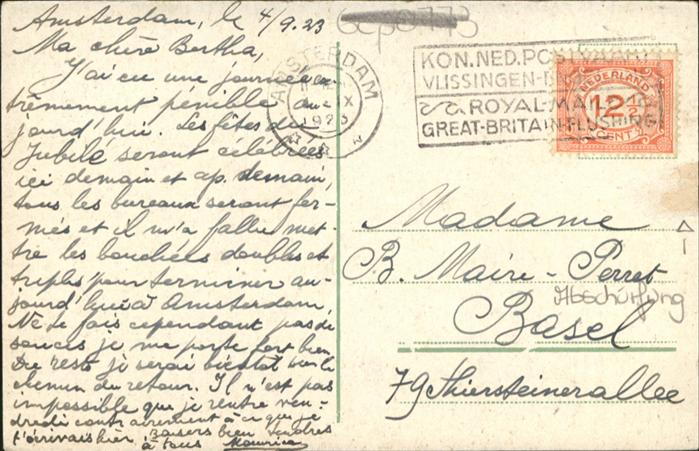 Amsterdam, le 4/9.23
Ma chère Bertha,
J'ai eu une journée ex-
trêmement pénible au-
jourd'hui. Les fêtes du
Jubilé seront célébrées
ici demain et ap. demain,
tous les bureaux seront fer-
més et il m'a fallu met-
tre les bouchées doubles et
triples pour terminer au-
jourd'hui à Amsterdam.
Ne te fais cependant pas de
soucis je me porte fort bien
Du reste je serai bientôt sur le
chemin du retour. Il n'est pas
impossible que je rentre ven-
dredi contrairement à ce que je
t'écrivais hier. Baisers bien tendres
à tous Maurice
AMSTERDAM
1923
KON. NED. POST
VLISSINGEN-
ROYAL-MAIL
GREAT-BRITAIN-FLUSHING
NEDERLAND
12½
CENT
Madame
B. Maire-Perret
Abschürfung
Basel
79 Thiersteinerallee